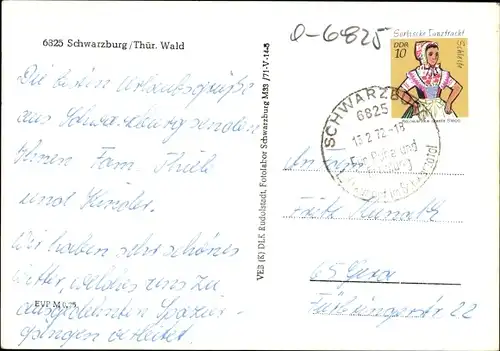 6825 Schwarzburg/Thür. Wald
Die besten Urlaubsgrüße
aus Schwarzburg senden
Ihnen Fam. Thiele
und Kinder.
Wir haben sehr schönes
Wetter, welches uns zu
ausgedehnten Spazier-
gängen verleitet.
EVP M 0,25
VEB (K) DLK Rudolstadt, Fotolabor Schwarzburg M33 /71-V-14-8
O-6825
Sorbische Tanztracht
DDR
10
Schleife
SCHWARZBURG
6825
13.2.72-18
Ruhe und
An
Fritz
65 Gera
22